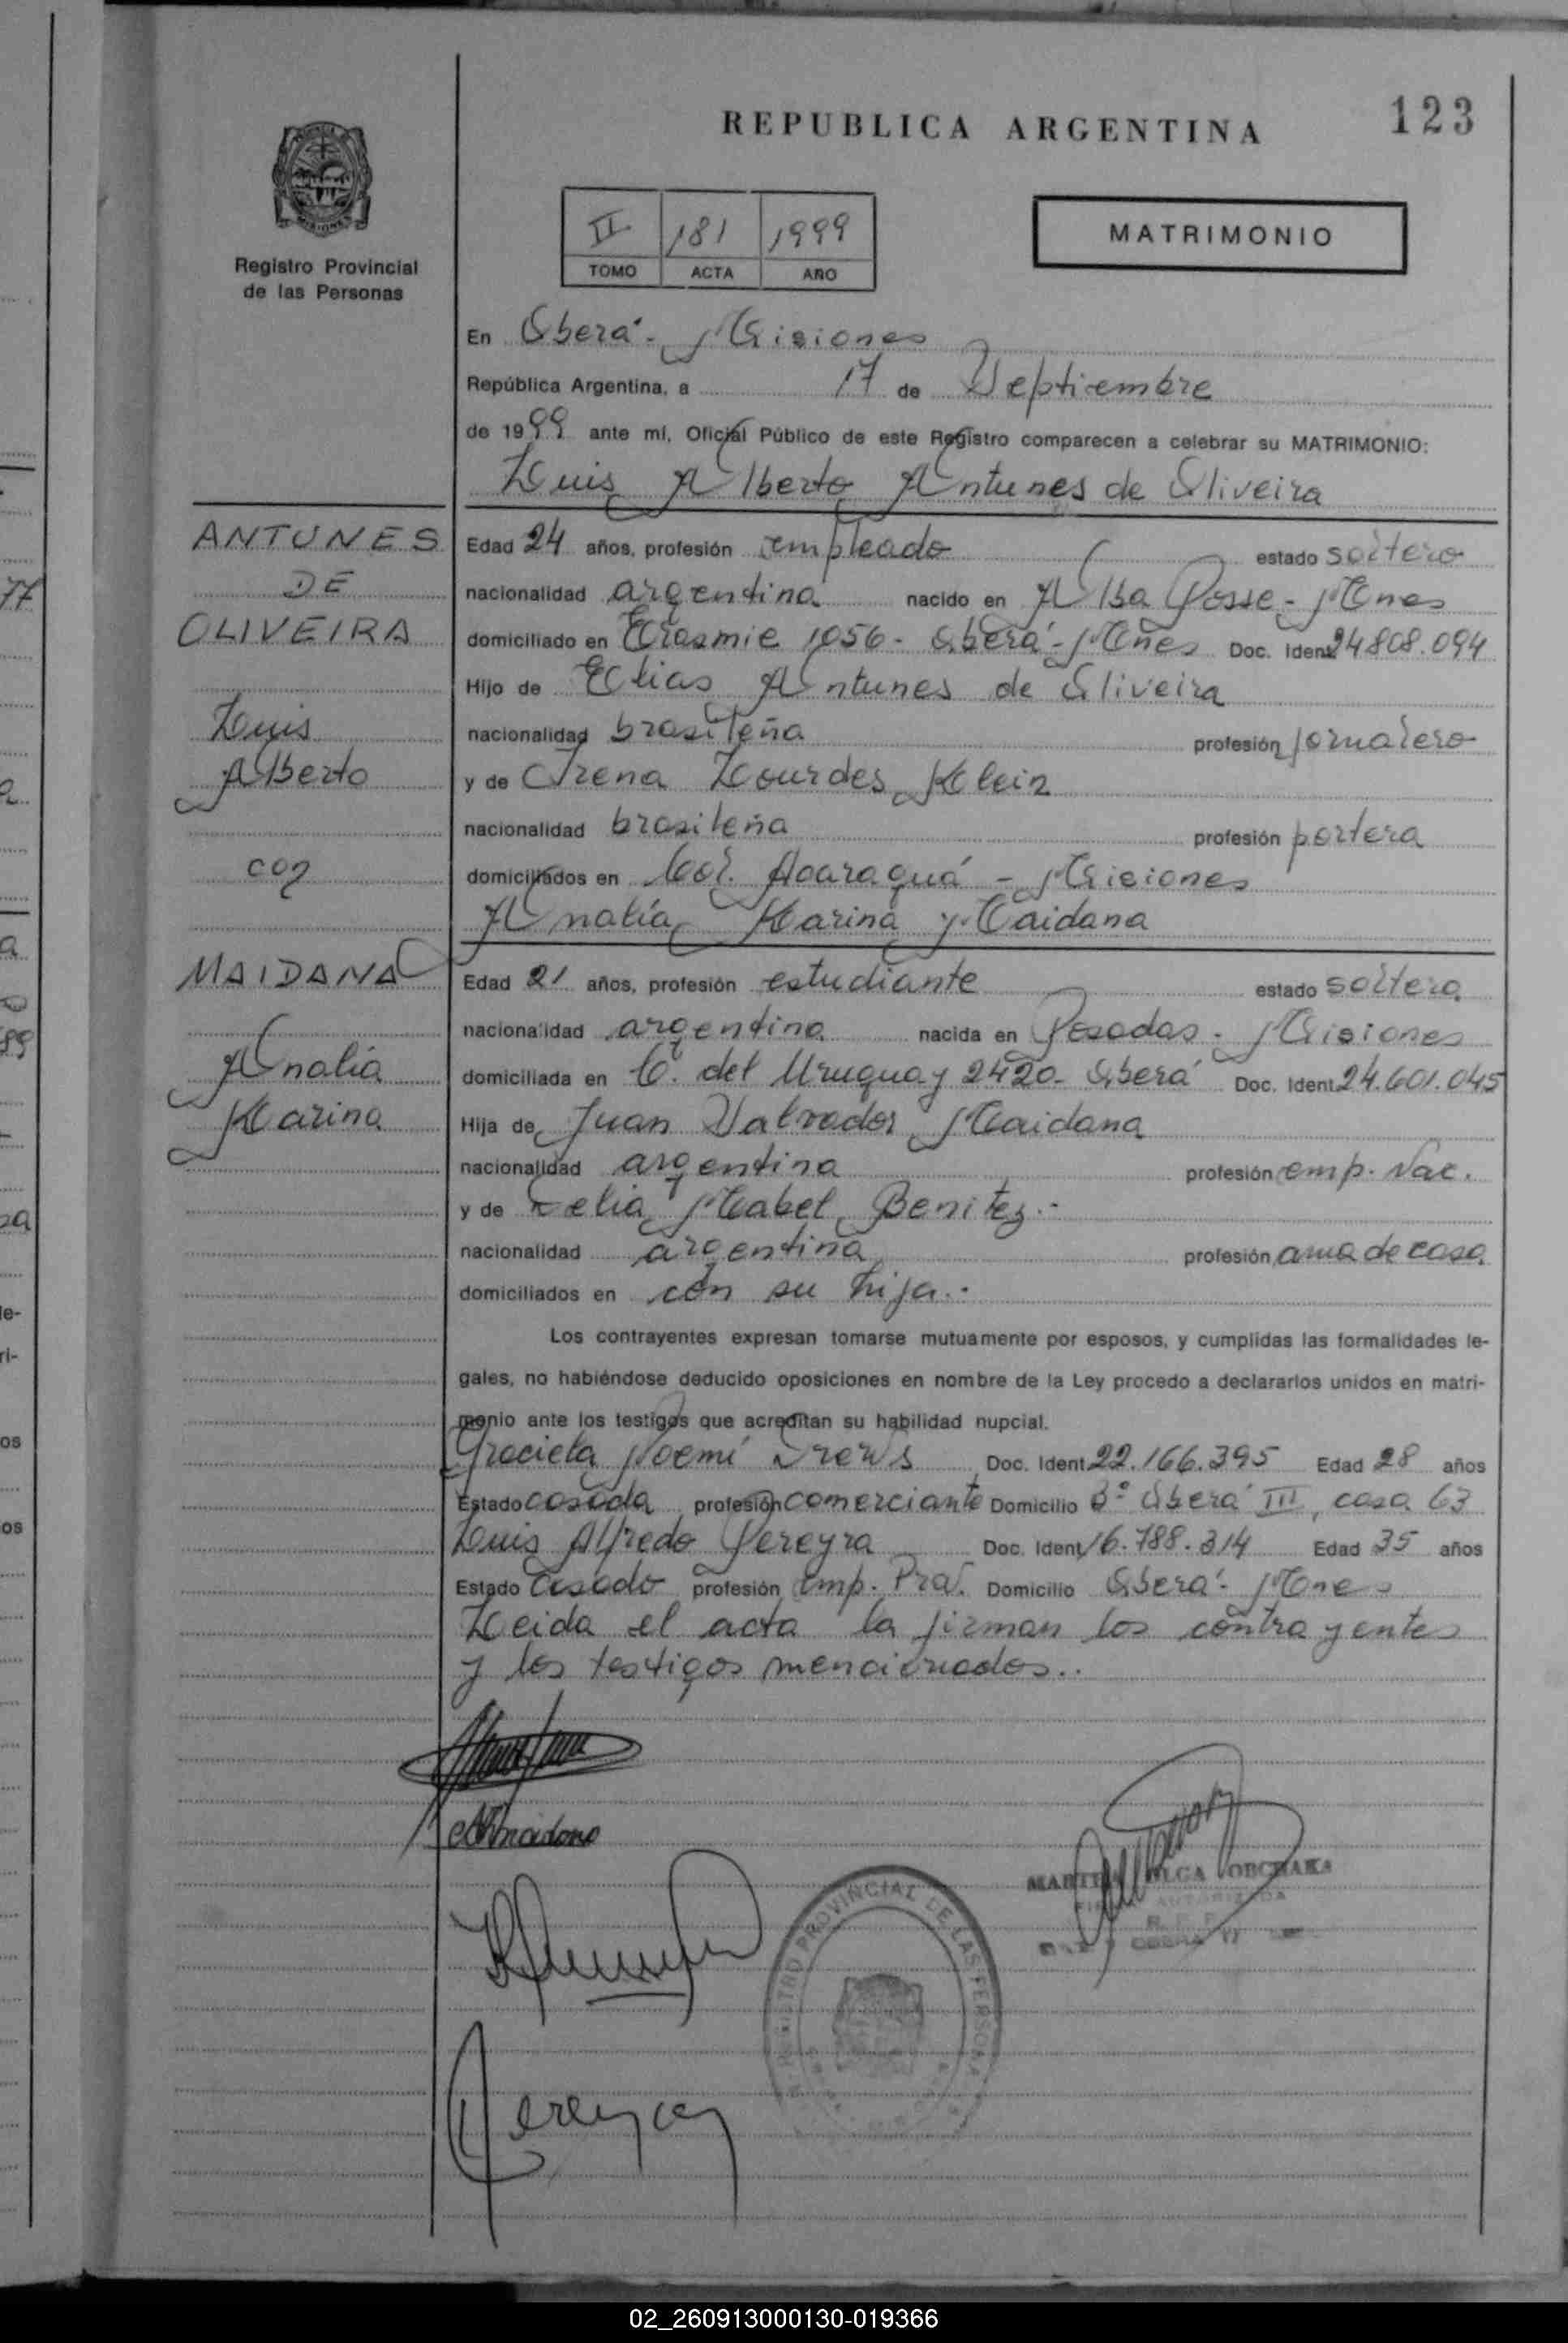 REPUBLICA ARGENTINA
123
Registro Provincial
de las Personas
II 181 1999
TOMO ACTA AÑO
MATRIMONIO
En Oberá - Misiones
República Argentina, a 17 de Septiembre
de 1999 ante mí, Oficial Público de este Registro comparecen a celebrar su MATRIMONIO:
Luis Alberto Antunes de Oliveira
ANTUNES
DE
OLIVEIRA
Luis
Alberto
con
MAIDANA
Analía
Karina
Edad 24 años, profesión empleado estado soltero
nacionalidad argentina nacido en Alba Posse - Mnes
domiciliado en 1056 - Oberá - Mnes Doc. Ident 24808.094
Hijo de Elias Antunes de Oliveira
nacionalidad brasileña profesión jornalero
y de Irena Lourdes Klein
nacionalidad brasileña profesión portera
domiciliados en Col. Acaraguá - Misiones
Analía Karina Maidana
Edad 21 años, profesión estudiante estado soltera
nacionalidad argentina nacida en Posadas - Misiones
domiciliada en C. del Uruguay 2420 - Oberá Doc. Ident 24.601.045
Hija de Juan Salvador Maidana
nacionalidad argentina profesión emp. Nac.
y de Mabel Benitez.-
nacionalidad argentina profesión ama de casa
domiciliados en con su hija.-
Los contrayentes expresan tomarse mutuamente por esposos, y cumplidas las formalidades le-
gales, no habiéndose deducido oposiciones en nombre de la Ley procedo a declararlos unidos en matri-
monio ante los testigos que acreditan su habilidad nupcial.
Graciela Noemí Drews Doc. Ident 22.166.395 Edad 28 años
Estado casada profesión comerciante Domicilio Bº Oberá III, casa 63
Luis Alfredo Pereyra Doc. Ident 16.788.314 Edad 35 años
Estado casado profesión emp. Domicilio Oberá - Mnes
Leida el acta la firman los contrayentes
y los testigos mencionados..
AKmaidana
OLGA
AUTORIZADA
REGISTRO PROVINCIAL DE LAS PERSONAS
Pereyra
02_260913000130-019366